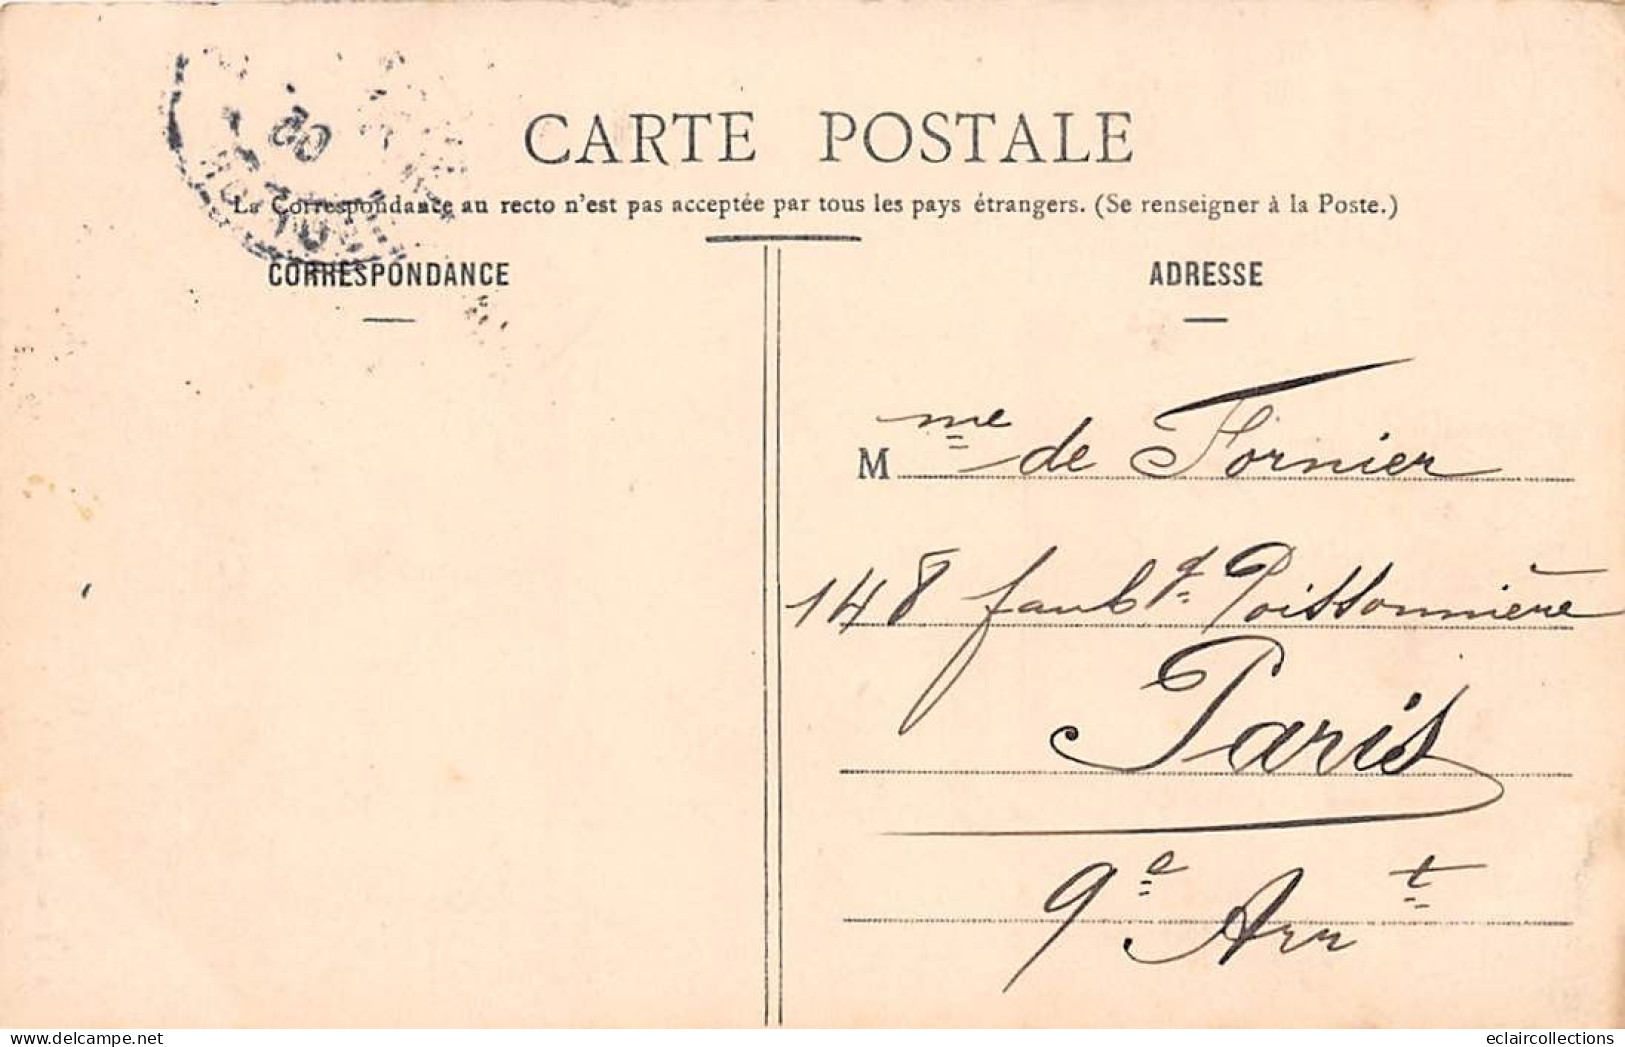 CARTE POSTALE
La Correspondance au recto n'est pas acceptée par tous les pays étrangers. (Se renseigner à la Poste.)
CORRESPONDANCE
ADRESSE
Mme de Fornier
148 faubg Poissonnière
Paris
9e Arrt
eclaircollections